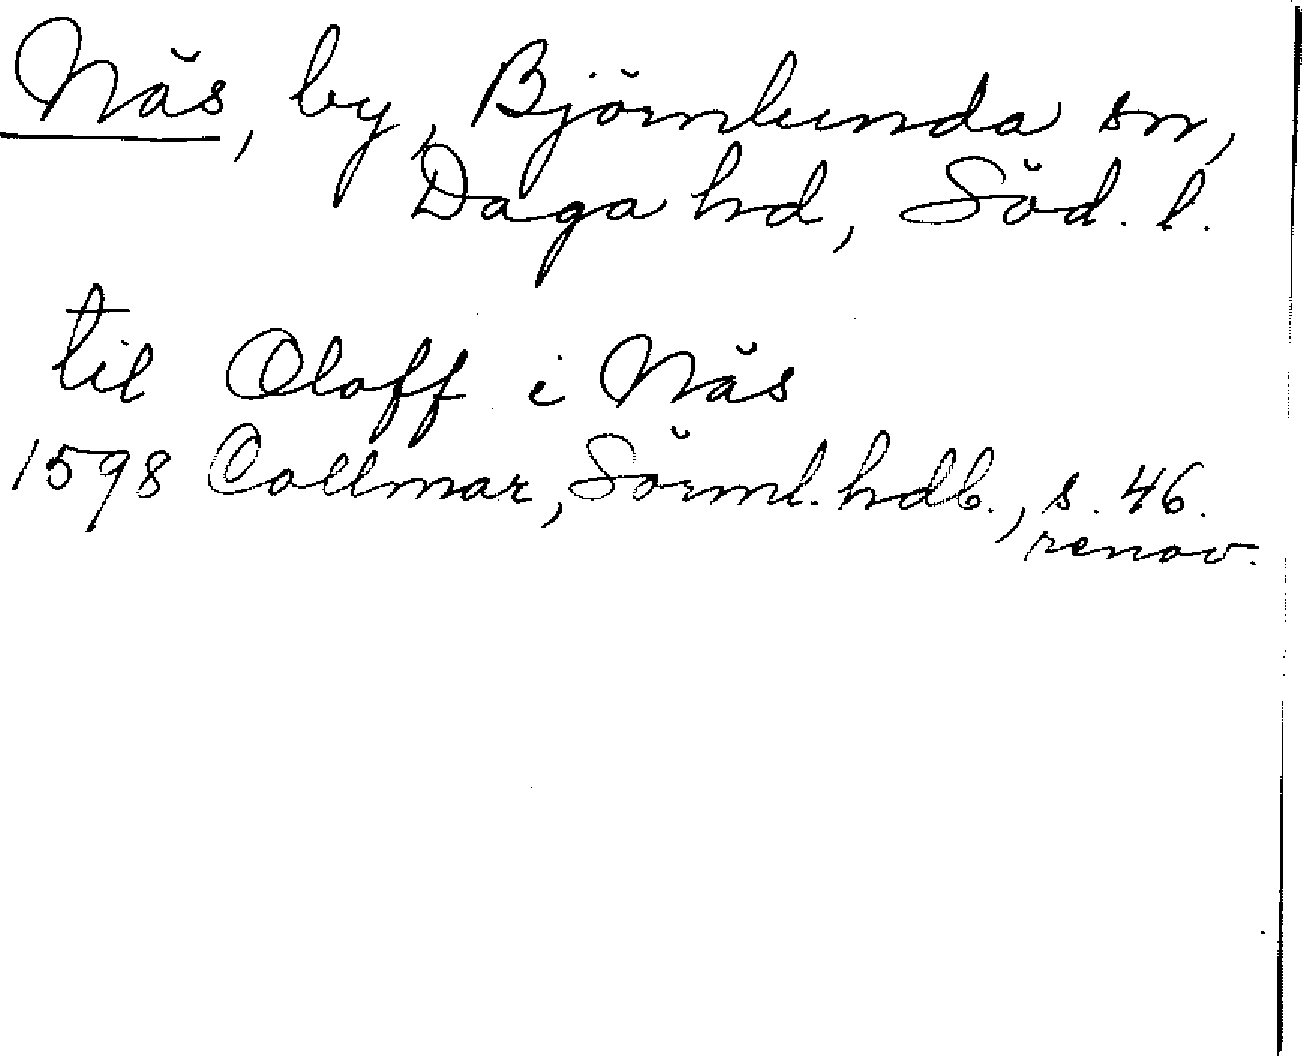 Näs, by, Björnlunda sn,
Daga hd, Söd. l.
til Oloff i Näs
1598 Collmar, Sörml. hdb., s. 46.
renov.